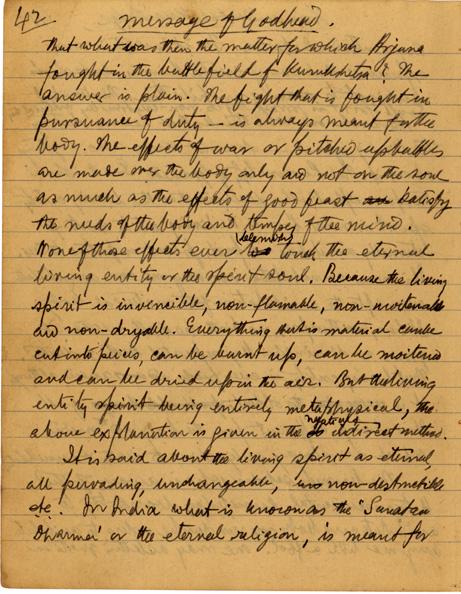 42 Message of Godhead.
that what was then the matter for which Arjuna
fought in the battlefield of Kurukhetra? The
answer is plain. The fight that is fought in
pursuance of duty - is always meant for the
body. The effects of war or pitched up battles
are made over the body only and not on the soul
as much as the effects of good feast satisfy
the needs of the body and temper of the mind.
None of those effects ever touch the eternal
living entity or the spirit soul. Because the living
spirit is invencible, non-flamable, non-moitenable
and non-dryable. Everything that is material can be
cut into peices, can be burnt up, can be moitened
and can be dried up in the air. But the living
entity spirit being entirely metaphysical, the
above explanation is given in the negative indirect method.
It is said about the living spirit as eternal,
all pervading, unchangeable, non-destructible
etc. In India what is known as the 'Sanatan
Dharma' or the eternal religion, is meant for